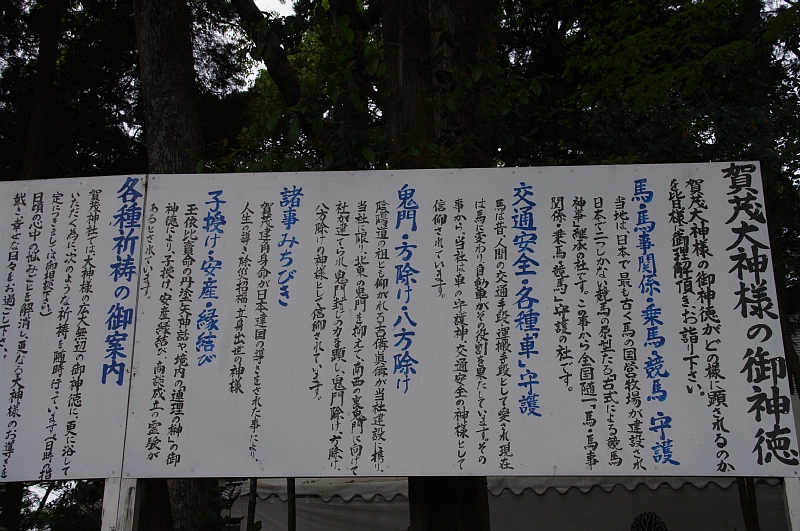 賀茂大神様の御神徳
賀茂大神様の御神徳がどの様に顕されるのか
を皆様に御理解頂きお詣り下さい。
馬・馬事関係・乗馬・競馬 守護
当地は、日本で最も古く馬の国営牧場が建設され
日本で二つしかない競馬の原型たる古式による競馬
神事が継承の社です。この事から全国随一「馬・馬事
関係・乗馬・競馬」守護の社です。
交通安全・各種「車」守護
馬は昔、人間の交通手段・運搬手段として愛され現在
は馬に変わり、自動車がその役割を果たしています。その
事から、当社は車の守護神、交通安全の神様として
信仰されています。
鬼門・方除け・八方除け
陰陽道の祖とも仰がれる吉備真備が当社建設に携り、
当社に限り、北東の鬼門を抑えて南西の裏鬼門に向けて
社が建てられ鬼門封じの力を顕し、鬼門除け・方除け、
八方除けの神様として信仰されています。
諸事みちびき
賀茂建角身命が日本建国の導きをされた事により、
人生の導き・除災招福・立身出世の神様
子授け・安産・縁結び
玉依比賣命の丹塗矢神話や境内の「連理の榊」の御
神徳により、子授け、安産、縁結び・商談成立の霊験が
あるとされています。
各種祈祷の御案内
賀茂神社では大神様の広大無辺の御神徳に、更に浴して
いただく為に、次のような祈祷を随時行っています。(日時の指
定につきましては御相談下さい)
日頃の心中の悩みごとを解消し、更なる大神様のお導きを
戴き幸せな日々をお過ごし下さい。